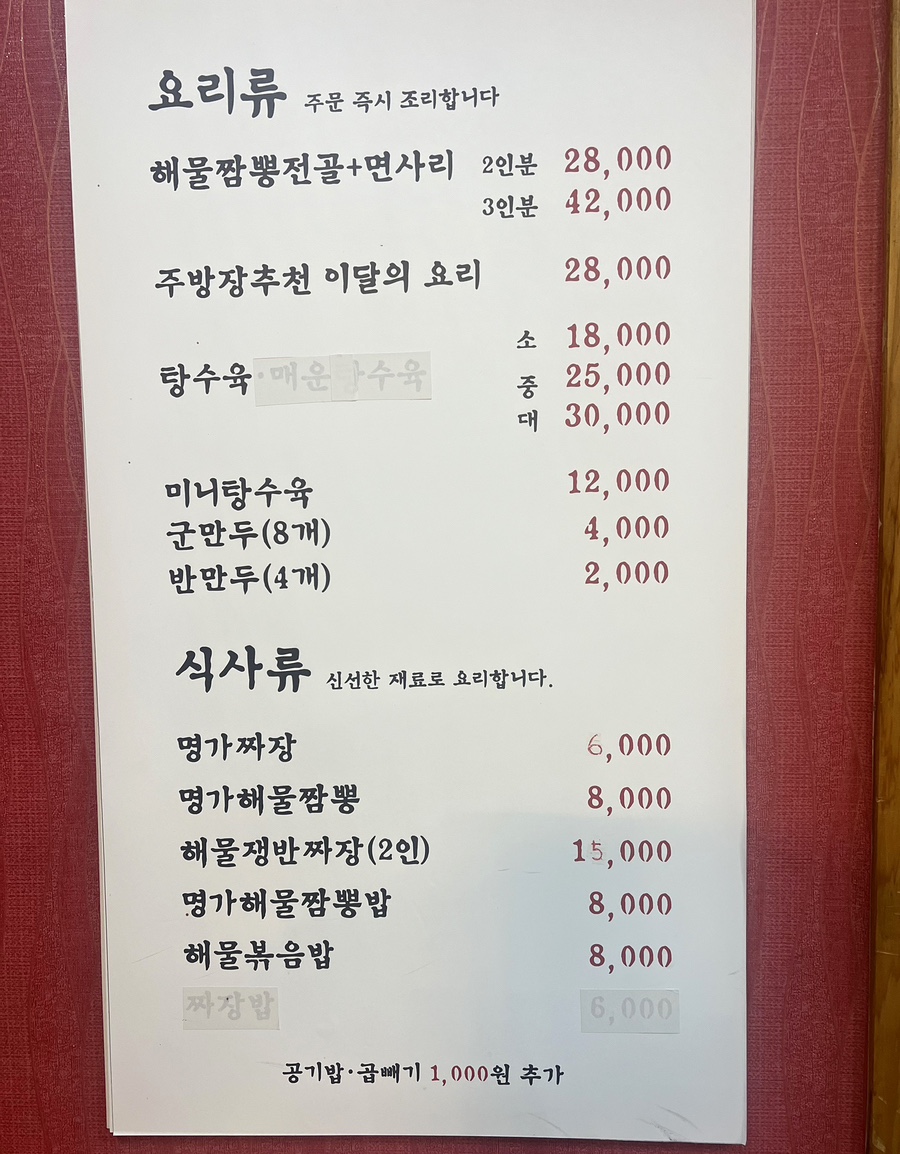 요리류 주문 즉시 조리합니다
해물짬뽕전골+면사리 2인분 28,000
3인분 42,000
주방장추천 이달의 요리 28,000
소 18,000
탕수육·매운탕수육 중 25,000
대 30,000
미니탕수육 12,000
군만두(8개) 4,000
반만두(4개) 2,000
식사류 신선한 재료로 요리합니다.
명가짜장 6,000
명가해물짬뽕 8,000
해물쟁반짜장(2인) 15,000
명가해물짬뽕밥 8,000
해물볶음밥 8,000
짜장밥 6,000
공기밥·곱빼기 1,000원 추가